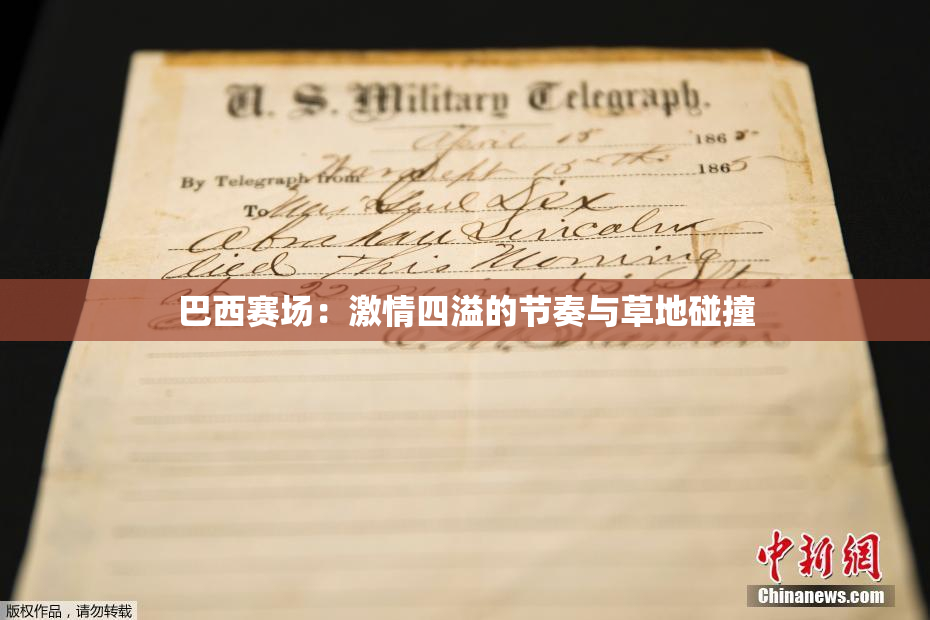 U. S. Military Telegraph.
April 15 1865
By Telegraph from War Dept 15th 1865
To Maj Genl Dix
Abraham Lincoln
died This Morning
at 22 minutes after
巴西赛场：激情四溢的节奏与草地碰撞
E. M. Stanton
中新网
Chinanews.com
版权作品，请勿转载